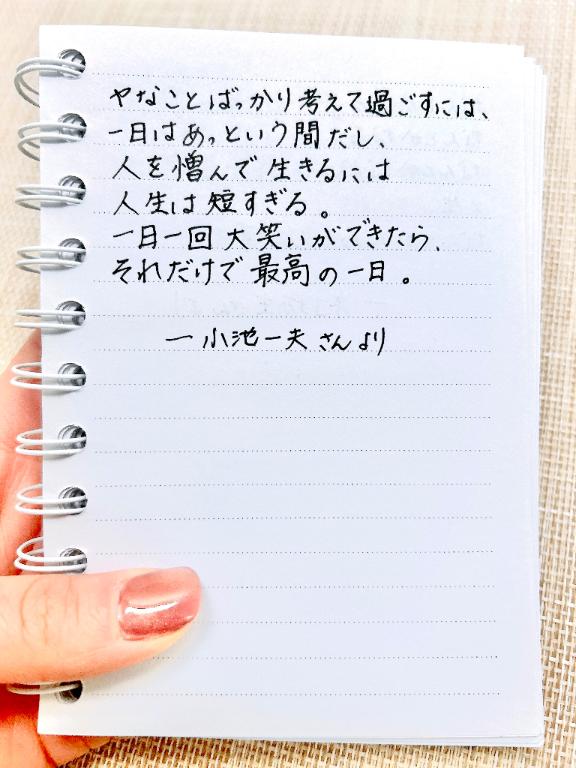 ヤなことばっかり考えて過ごすには、
一日はあっという間だし、
人を憎んで生きるには
人生は短すぎる。
一日一回大笑いができたら、
それだけで最高の一日。
ー小池一夫さんより